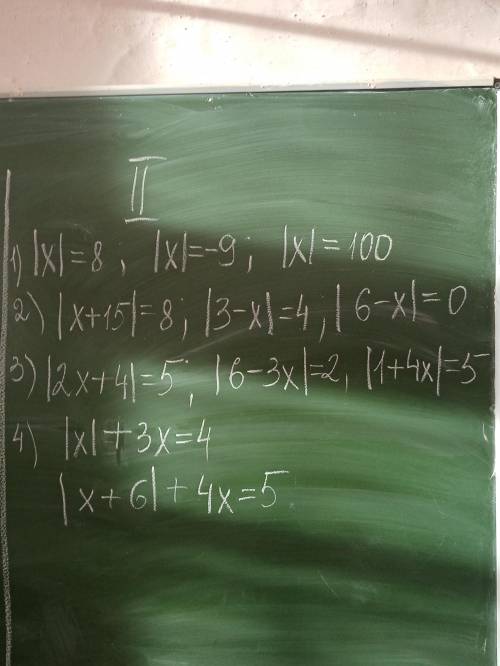 II
1) |x|=8 ; |x|=-9 ; |x|=100
2) |x+15|=8; |3-x|=4; |6-x|=0
3) |2x+4|=5; |6-3x|=2, |1+4x|=5
4) |x|+3x=4
|x+6|+4x=5